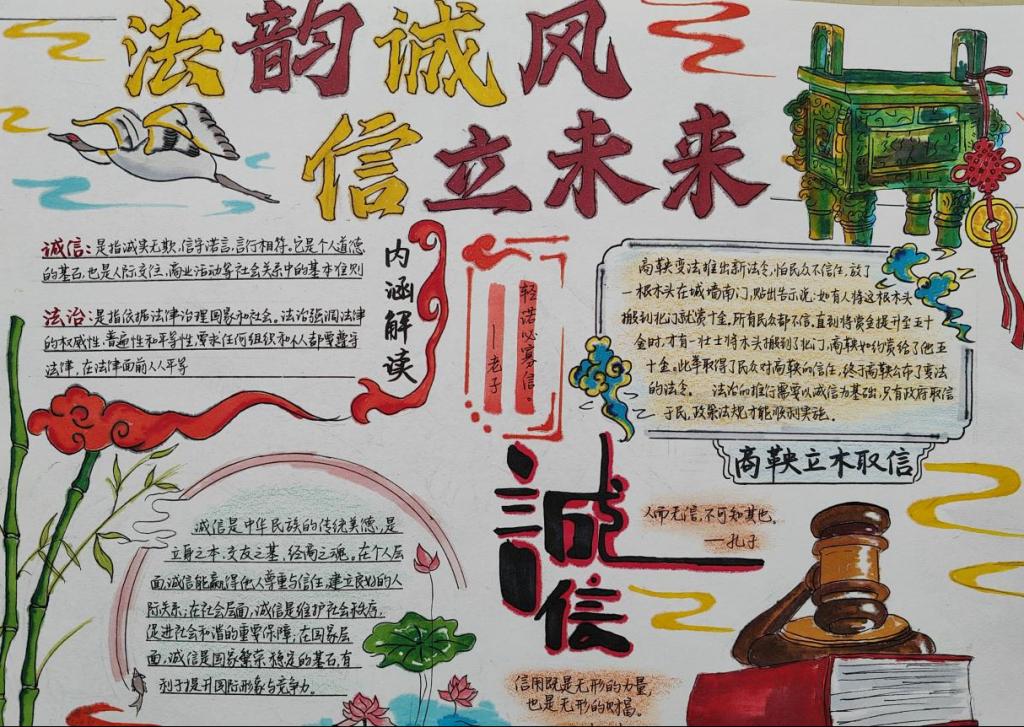 法韵诚风
信立未来
诚信：是指诚实无欺，信守诺言，言行相符。它是个人道德
的基石，也是人际交往，商业活动等社会关系中的基本准则
法治：是指依据法律治理国家和社会。法治强调法律
的权威性、普遍性和平等性，要求任何组织和个人都要遵守
法律，在法律面前人人平等
内涵解读
轻诺必寡信。
——老子
商鞅变法推出新法令，怕民众不信任，放了
一根木头在城墙南门，贴出告示说：如有人将这根木头
搬到北门就赏十金。所有民众都不信，直到将赏金提升至五十
金时，才有一壮士将木头搬到了北门，商鞅如约赏给了他五
十金。此举取得了民众对商鞅的信任，终于商鞅公布了变法
的法令。 法治的推行需要以诚信为基础，只有政府取信
于民，政策法规才能顺利实施。
商鞅立木取信
诚信是中华民族的传统美德，是
立身之本、交友之基、经商之魂。在个人层
面，诚信能赢得他人尊重与信任，建立良好的人
际关系；在社会层面，诚信是维护社会秩序，
促进社会和谐的重要保障；在国家层
面，诚信是国家繁荣、稳定的基石，有
利于提升国际形象与竞争力。
誠信
人而无信，不可知其也。
——孔子
信用既是无形的力量，
也是无形的财富。